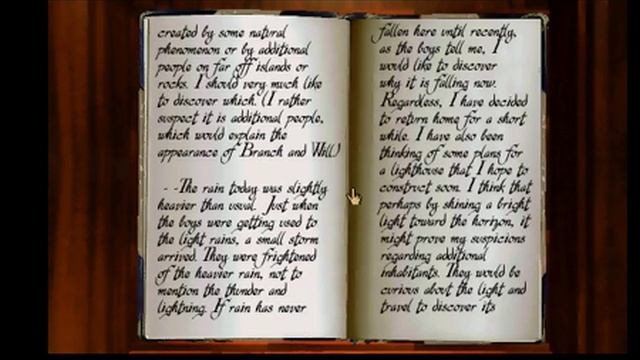 created by some natural
phenomenon or by additional
people on far off islands or
rocks. I should very much like
to discover which. (I rather
suspect it is additional people,
which would explain the
appearance of Branch and Will)
- -The rain today was slightly
heavier than usual. Just when
the boys were getting used to
the light rains, a small storm
arrived. They were frightened
of the heavier rain, not to
mention the thunder and
lightning. If rain has never
fallen here until recently,
as the boys tell me, I
would like to discover
why it is falling now.
Regardless, I have decided
to return home for a short
while. I have also been
thinking of some plans for
a lighthouse that I hope to
construct soon. I think that
perhaps by shining a bright
light toward the horizon, it
might prove my suspicions
regarding additional
inhabitants. They would be
curious about the light and
travel to discover its